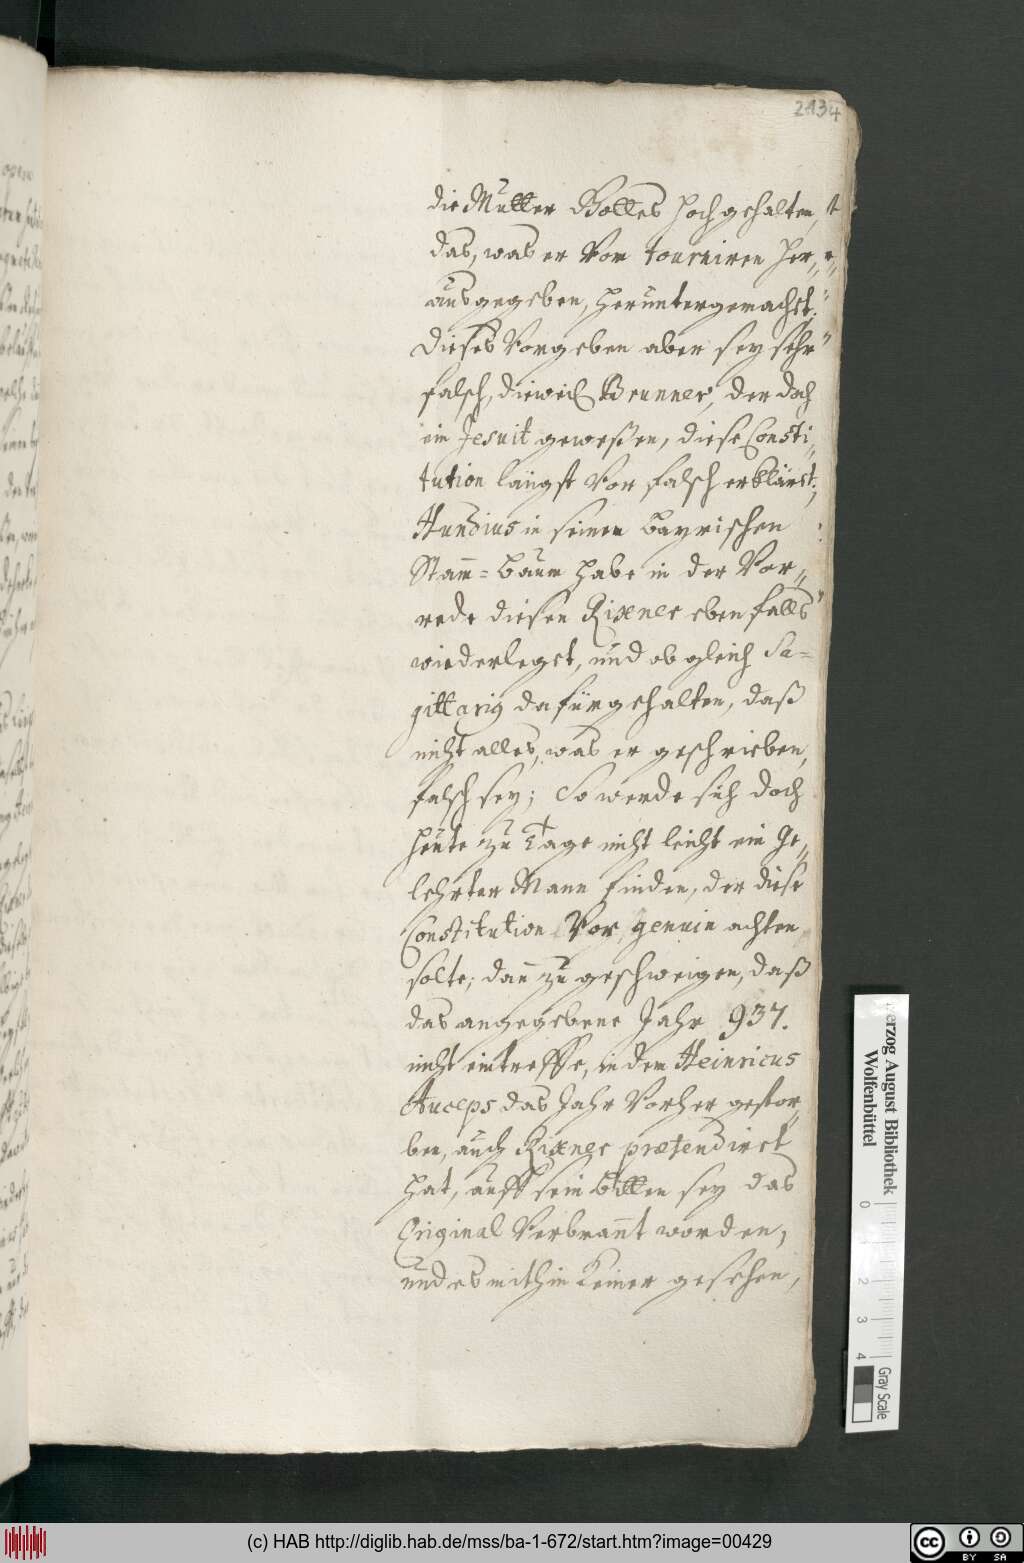 2134
die Mutter Gottes hochgehalten,
das, was er Von tourniren her„
ausgegeben, heruntergemachet.
dieses Vorgeben aber sey sehr
falsch, dieweil Brunner, der doch
ein Jesuit geweßen, diese Consti„
tution längst vor falsch erkläret,
Hundius in seinem bayrischen
Stam̄=baum habe in der Vor„
rede diesen Rixner ebenfalls
wiederleget, und obgleich Sa=
gittarius dafürgehalten, daß
nicht alles, was er geschrieben,
falsch sey; So werde sich doch
heute zu Tage nicht leicht ein Ge„
lehrter Mann finden, der diese
Constitution Vor genuin achten
solte; dan̄ zu geschweigen, daß
das angegebene Jahr 937.
nicht eintreffe, indem Heinricus
Auceps das Jahr Vorher gestor„
ben, auch Rixner prætendiret
hat, auff sein bitten sey das
Original Verbran̄t worden,
und es mithin Keiner gesehen,
Herzog August Bibliothek
Wolfenbüttel
0
2
3
4
Gray Scale
(c) HAB http://diglib.hab.de/mss/ba-1-672/start.htm?image=00429
cc BY SA